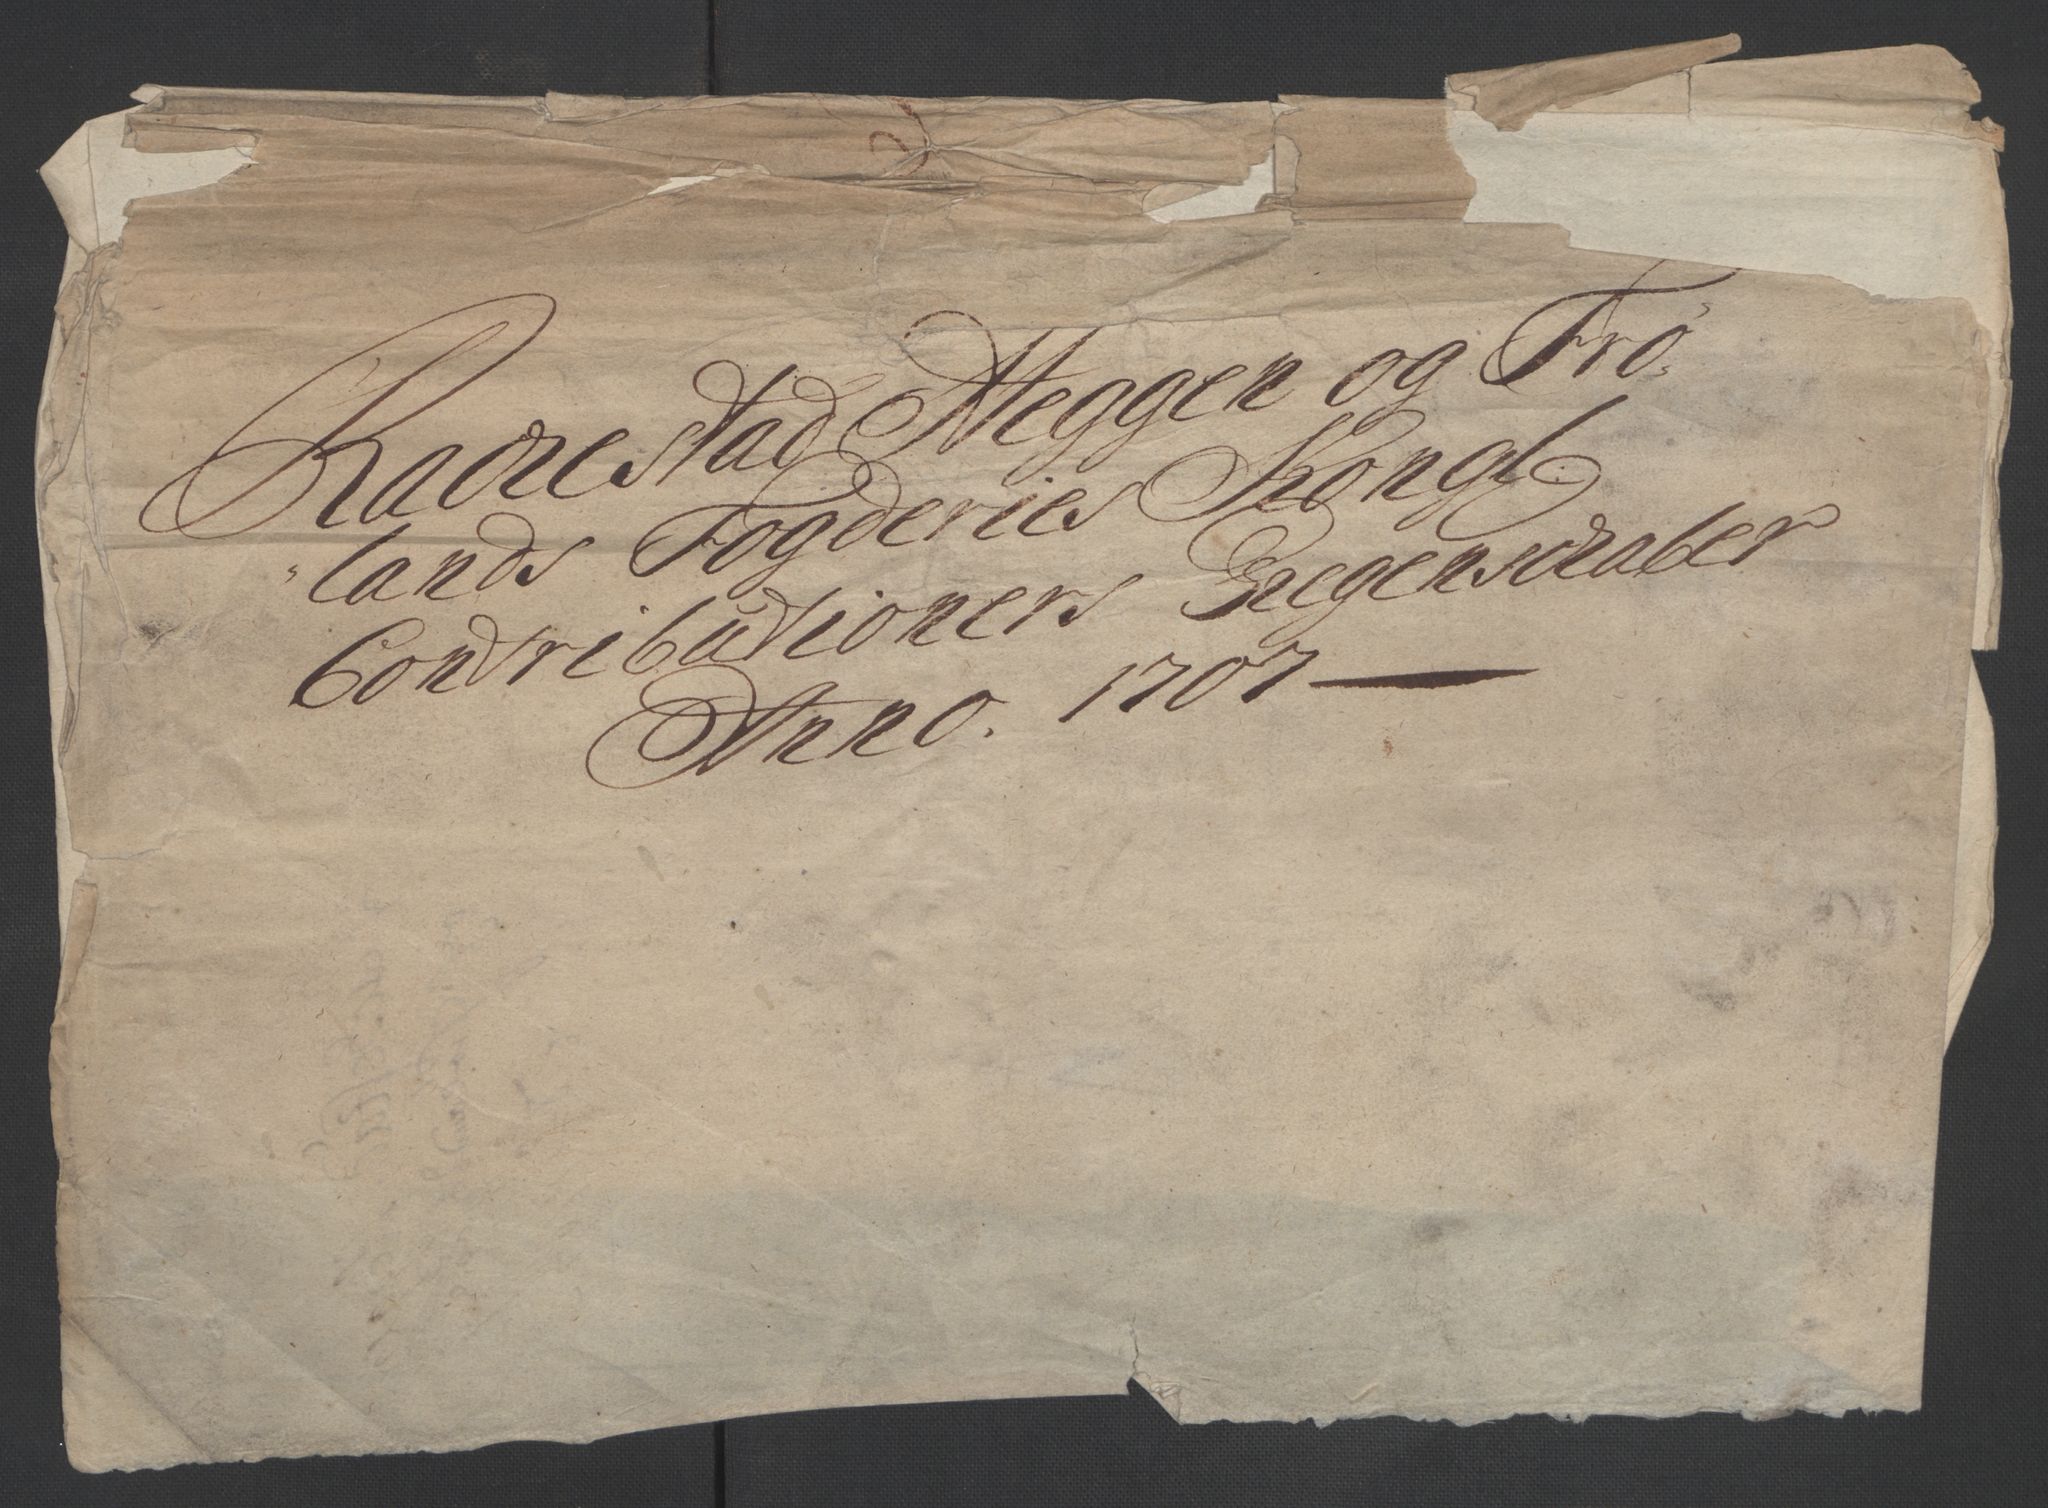 Rackestad Heggen og Frö-
lands Fogderies Kongl
Contributioners Regenskaber
Anno. 1707